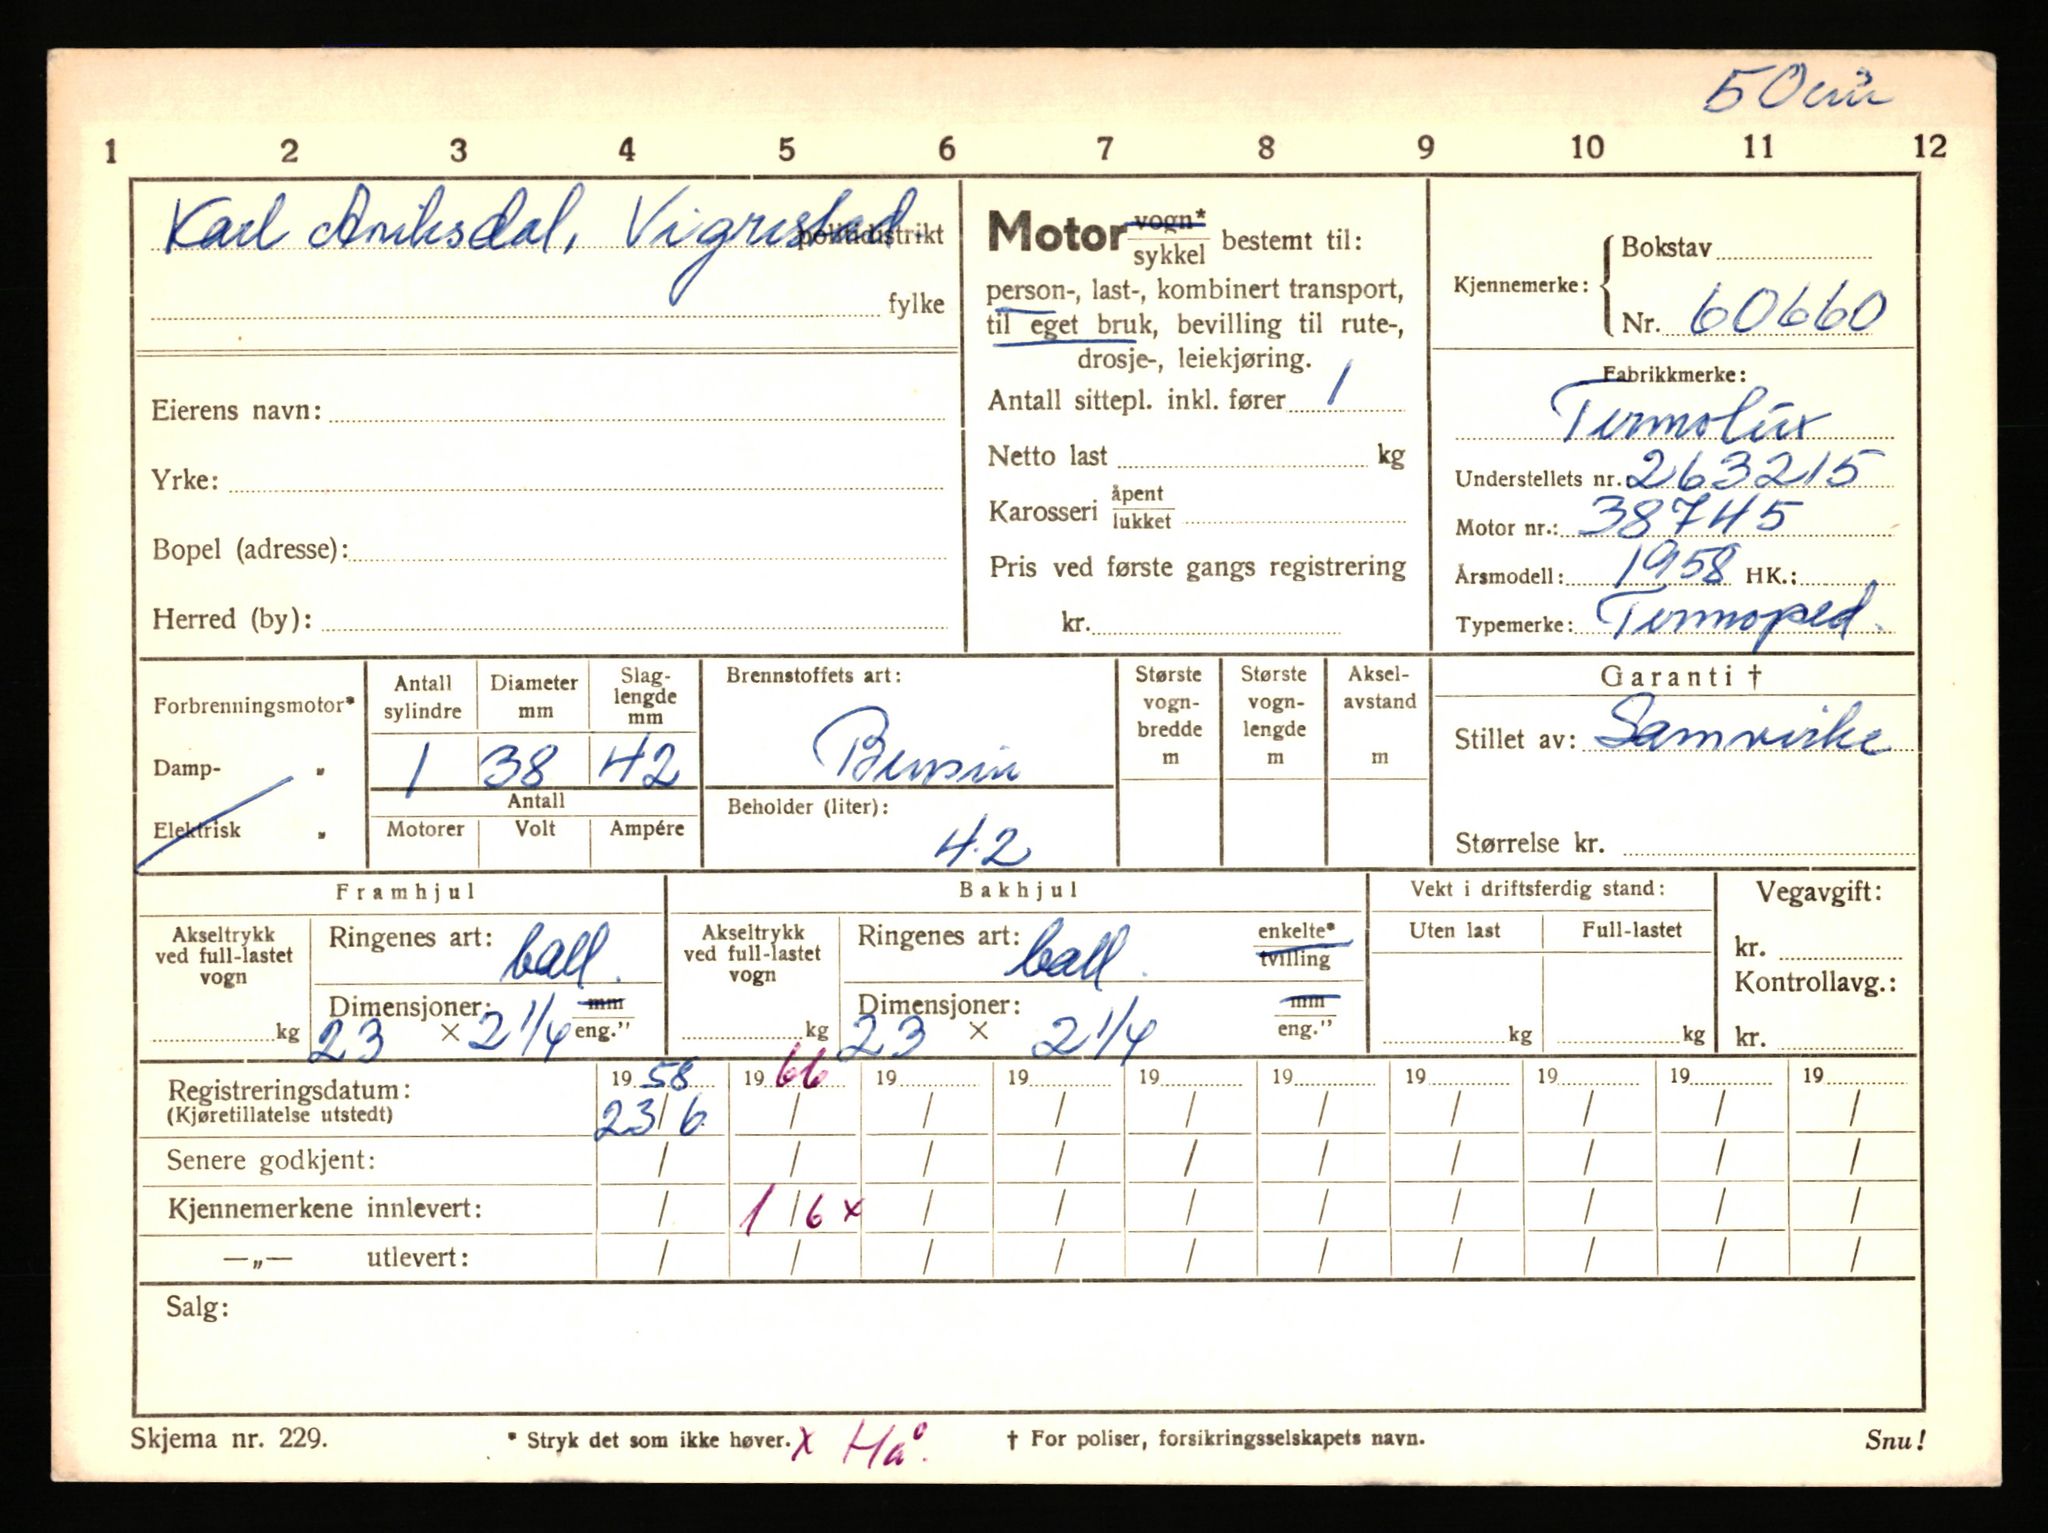 50 cm³
1 2 3 4 5 6 7 8 9 10 11 12
Karl Aniksdal, Vigrestad politidistrikt
fylke
Eierens navn:
Yrke:
Bopel (adresse):
Herred (by):
Motor vogn* / sykkel bestemt til:
person-, last-, kombinert transport,
til eget bruk, bevilling til rute-,
drosje-, leiekjøring.
Antall sittepl. inkl. fører 1
Netto last kg
Karosseri åpent / lukket
Pris ved første gangs registrering
kr.
Kjennemerke: Bokstav
Nr. 60660
Fabrikkmerke:
Termolux
Understellets nr.: 263215
Motor nr.: 38745
Årsmodell: 1958 HK.:
Typemerke: Termoped.
Forbrenningsmotor*
Damp- "
Elektrisk "
Antall sylindre
1
Diameter mm
38
Slag-
lengde
mm
42
Antall
Motorer Volt Ampére
Brennstoffets art:
Bensin
Beholder (liter):
4.2
Største
vogn-
bredde
m
Største
vogn-
lengde
m
Aksel-
avstand
m
Garanti †
Stillet av: Samvirke
Størrelse kr.
Framhjul
Akseltrykk
ved full-lastet
vogn
kg
Ringenes art: ball.
Dimensjoner: mm
23 × 2 1/4 eng."
Bakhjul
Akseltrykk
ved full-lastet
vogn
kg
Ringenes art: ball. enkelte* / tvilling
Dimensjoner: mm
23 × 2 1/4 eng."
Vekt i driftsferdig stand:
Uten last Full-lastet
kg kg
Vegavgift:
kr.
Kontrollavg.:
kr.
Registreringsdatum: 19 58 19 66 19 19 19 19 19 19 19 19
(Kjøretillatelse utstedt) 23/6 / / / / / / / / /
Senere godkjent: / / / / / / / / / /
Kjennemerkene innlevert: / 1/6 x / / / / / / / /
—„— utlevert: / / / / / / / / / /
Salg:
Skjema nr. 229. * Stryk det som ikke høver. x Hå. † For poliser, forsikringsselskapets navn. Snu!